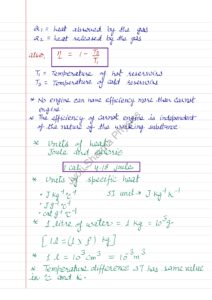 Q₁ = heat absorbed by the gas
Q₂ = heat released by the gas
also, η = 1 - T₂/T₁
T₁ = Temperature of hot reservoirs
T₂ = Temperature of cold reservoirs
* No engine can have efficiency more than carnot
engine
* The efficiency of carnot engine is independent
of the nature of the working substance
* Units of heat:
Joule and calorie
1 cal = 4.18 joule
* Units of specific heat
• J kg⁻¹ °C⁻¹ SI unit → J kg⁻¹ K⁻¹
• J g⁻¹ °C⁻¹
• cal g⁻¹ °C⁻¹
* 1 litre of water = 1 kg = 10³ g
[1 L = (1 × ρ) kg]
* 1 L = 10³ cm³ = 10⁻³ m³
* Temperature difference ΔT has same value
in °C and K.